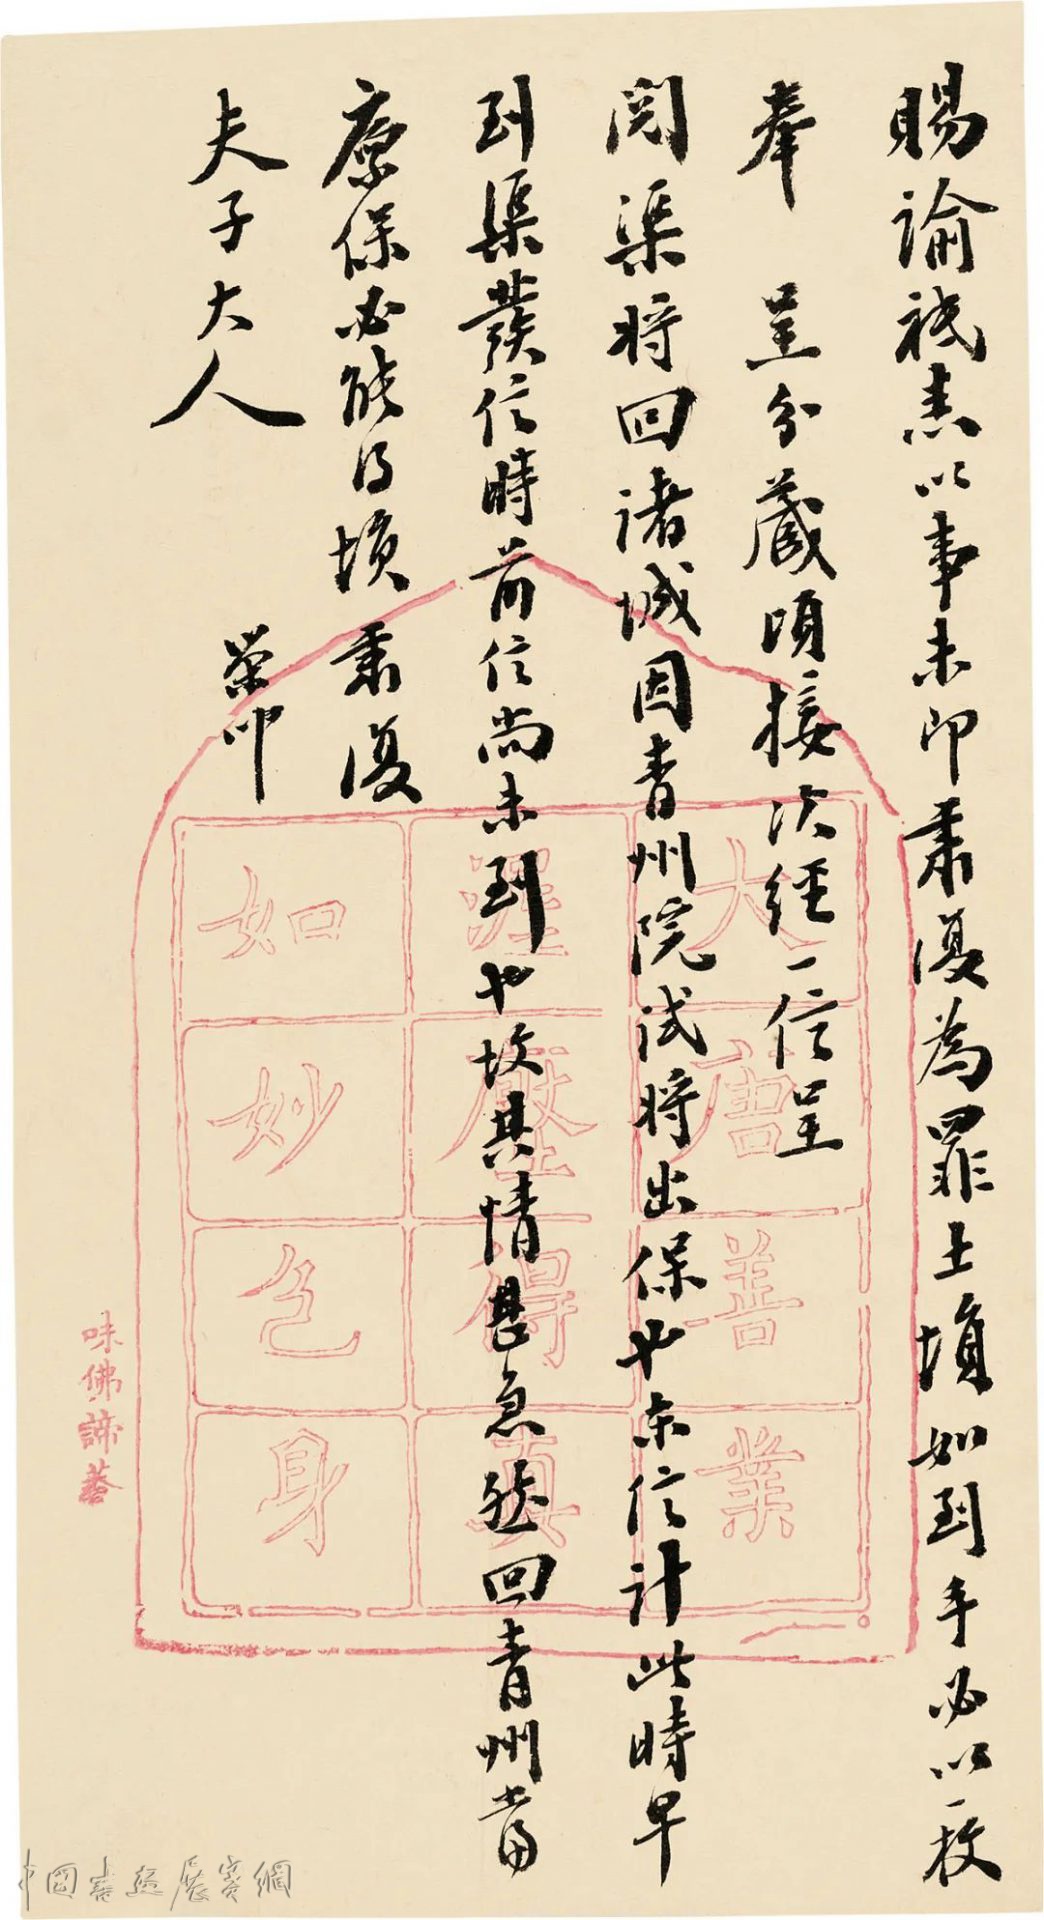 賜諭祗悉以事未即肅復為罪土塤如到手必以一枚
奉 呈分藏頃接次經一信呈
閱渠將回諸城因青州院試將出保也東信計此時早
到渠發信時前信尚未到也故其情甚急然回青州當
應保必能得塤肅復
夫子大人 榮叩
大唐善業
渥壓得真
如妙色身
味佛諦菴
中國書畫展賽網